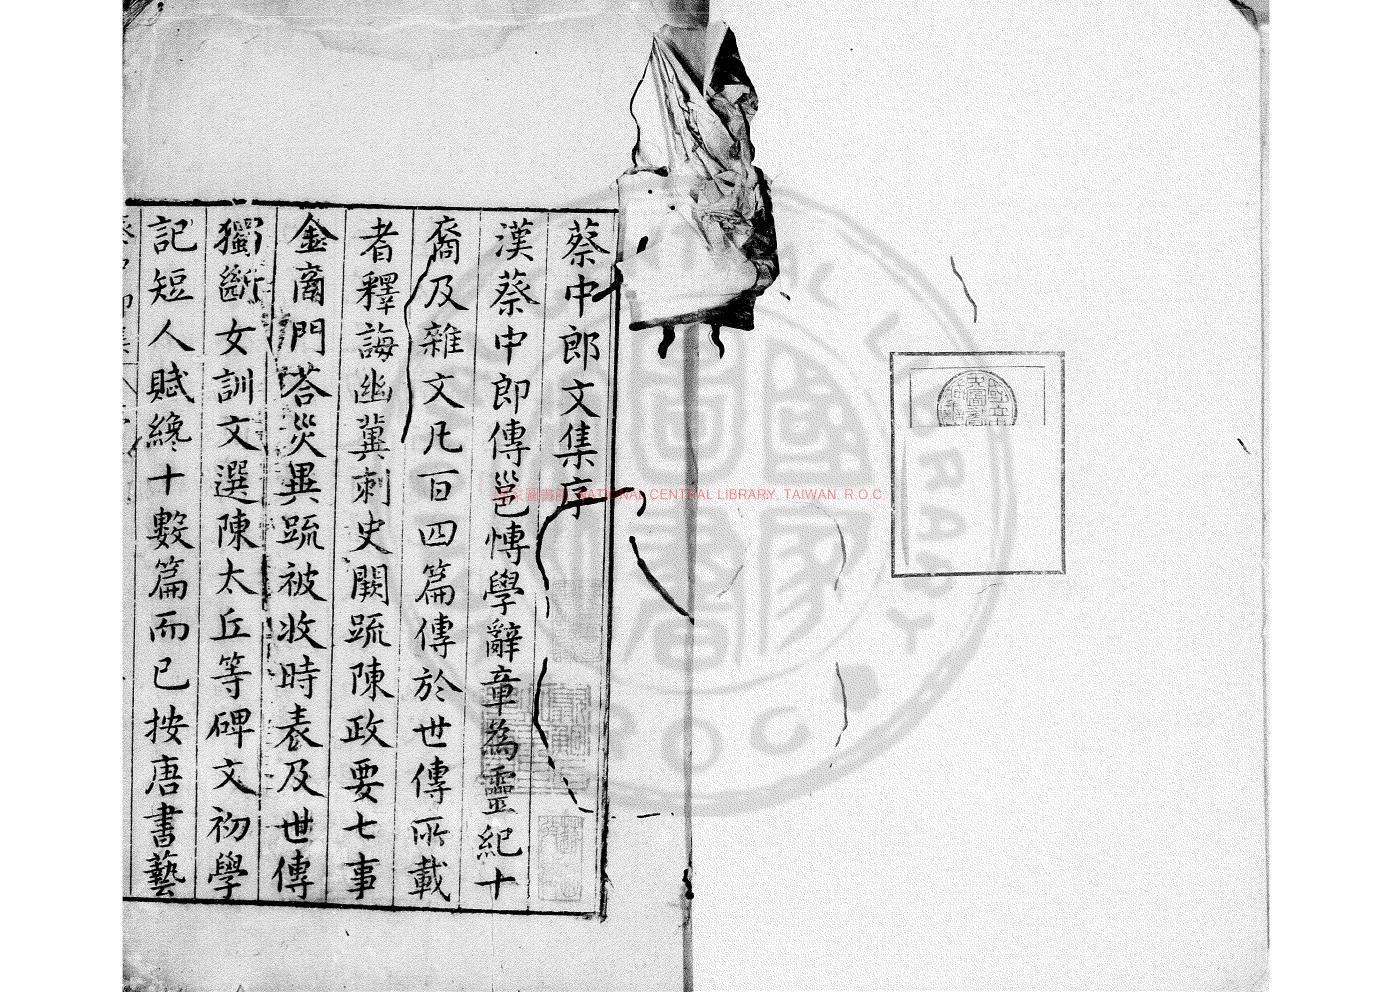 蔡中郎文集序
漢蔡中郎傳邕慱學辭章為靈紀十
裔及雜文凡百四篇傳於世傳所載
者釋誨幽冀刺史闕䟽陳政要七事
金啇門荅災異䟽被收時表及世傳
獨斷女訓文選陳太丘等碑文初學
記短人賦纔十數篇而已按唐書藝
NATIONAL CENTRAL LIBRARY, TAIWAN. R.O.C.